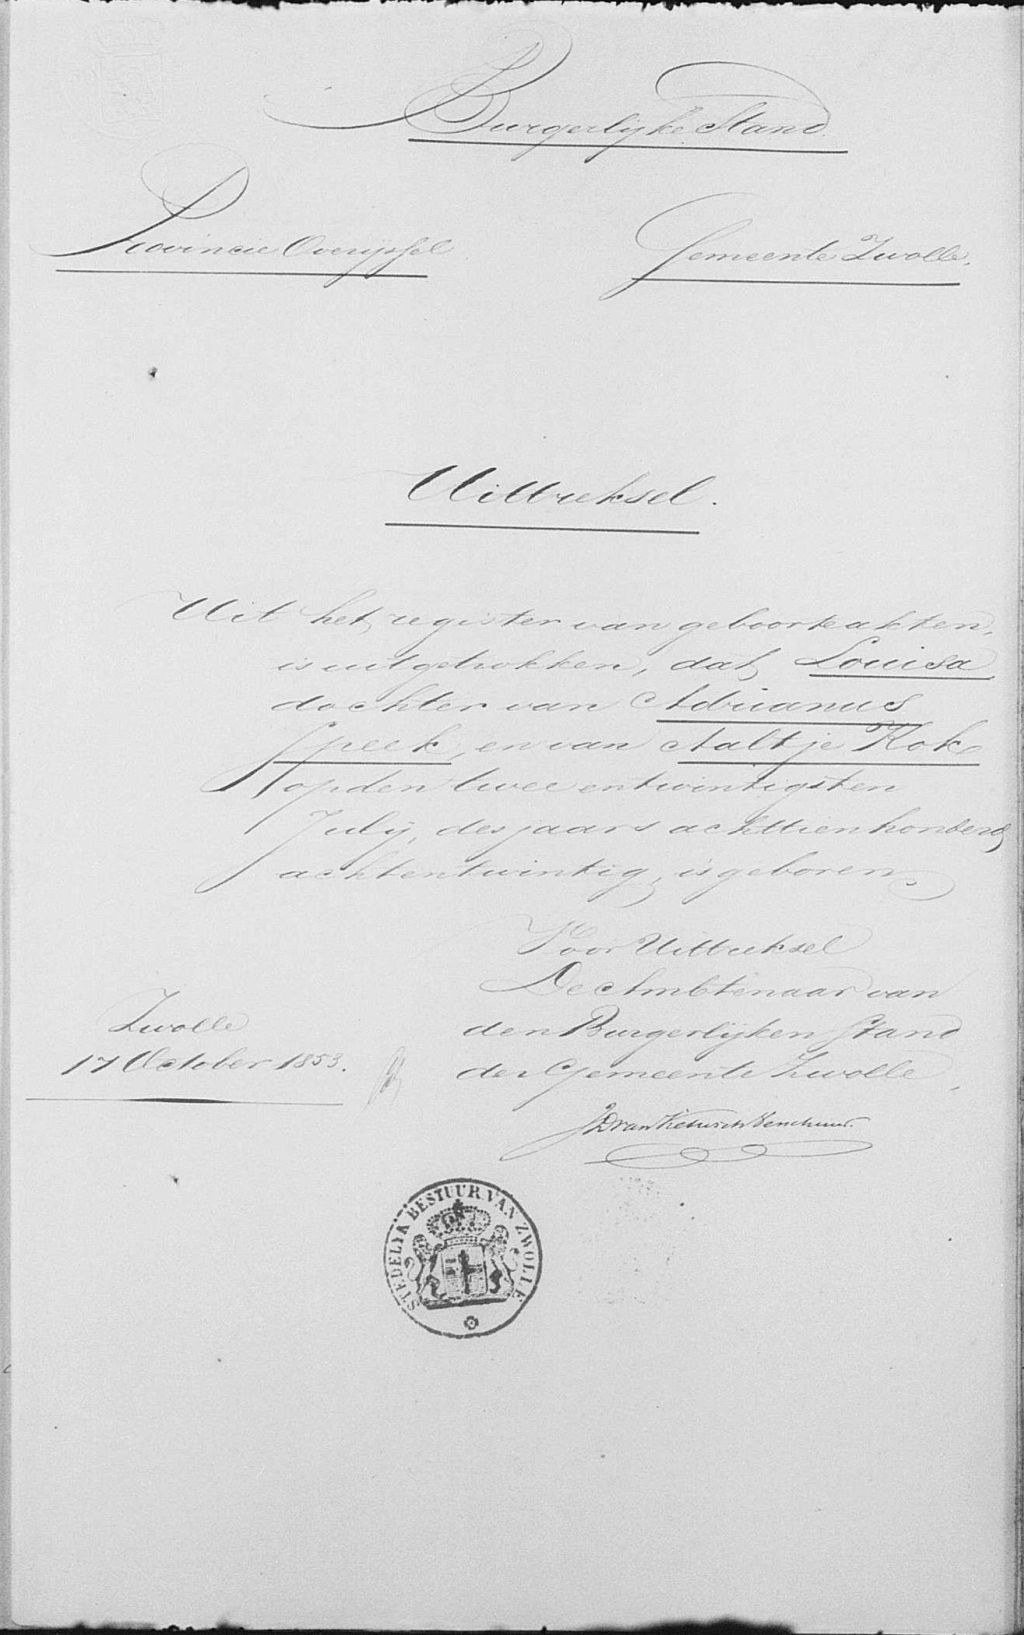 Burgerlijke Stand.
Provincie Overijssel.
Gemeente Zwolle.
Uittreksel.
Uit het register van geboorteakten,
is uitgetrokken, dat Louisa
dochter van Adrianus
Speek, en van Aaltje Kok
op den twee entwintigsten
July, des jaars achttienhonderd
achtentwintig, is geboren.
Voor Uittreksel
De Ambtenaar van
den Burgerlijken Stand
der Gemeente Zwolle,
Zwolle
17 October 1853.
STEDELYK BESTUUR VAN ZWOLLE